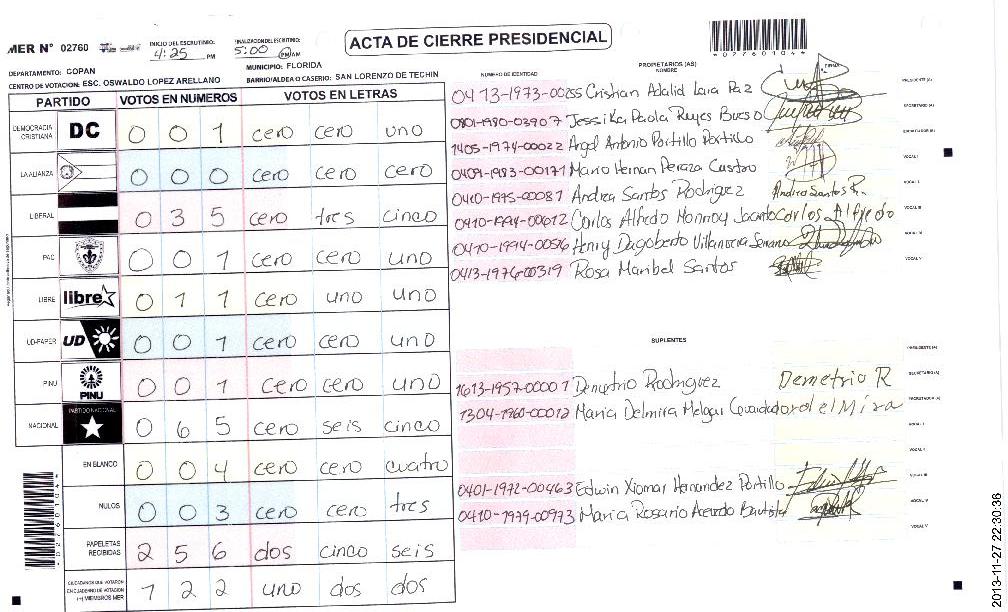 MER N° 02760
INICIO DEL ESCRUTINIO: 4:25 PM
FINALIZACION DEL ESCRUTINIO: 5:00 PM AM
ACTA DE CIERRE PRESIDENCIAL
02760104
DEPARTAMENTO: COPAN
MUNICIPIO: FLORIDA
CENTRO DE VOTACION: ESC. OSWALDO LOPEZ ARELLANO
BARRIO/ALDEA O CASERIO: SAN LORENZO DE TECHIN
PARTIDO VOTOS EN NUMEROS VOTOS EN LETRAS
DEMOCRACIA CRISTIANA DC 0 0 1 cero cero uno
LA ALIANZA 0 0 0 cero cero cero
LIBERAL 0 3 5 cero tres cinco
PAC 0 0 1 cero cero uno
LIBRE libre 0 1 1 cero uno uno
UD-FAPER UD 0 0 1 cero cero uno
PINU PINU 0 0 1 cero cero uno
NACIONAL PARTIDO NACIONAL 0 6 5 cero seis cinco
EN BLANCO 0 0 4 cero cero cuatro
NULOS 0 0 3 cero cero tres
PAPELETAS RECIBIDAS 2 5 6 dos cinco seis
CIUDADANOS QUE VOTARON EN CUADERNO DE VOTACION (+) MIEMBROS MER 1 2 2 uno dos dos
PROPIETARIOS (AS)
NUMERO DE IDENTIDAD NOMBRE FIRMA
0413-1973-00255 Cristian Adalid Lara Paz PRESIDENTE (A)
0801-1980-03907 Jessika Paola Reyes Bueso SECRETARIO (A)
1405-1974-00022 Angel Antonio Portillo Portillo ESCRUTADOR (A)
0409-1983-00171 Mario Hernan Peraza Castro VOCAL I
0410-1995-00087 Andrea Santos Rodriguez Andrea Santos R. VOCAL II
0410-1994-00612 Carlos Alfredo Monroy Jacinto carlos Alfredo VOCAL III
0410-1994-00516 Henry Dagoberto Villanueva Serrano VOCAL IV
0413-1976-00319 Rosa Maribel Santos VOCAL V
SUPLENTES
PRESIDENTE (A)
1613-1957-00001 Demetrio Rodriguez Demetrio R SECRETARIO (A)
1304-1960-00012 Maria Delmira Melgar ESCRUTADOR (A)
VOCAL I
VOCAL II
0401-1972-00463 Edwin Xiomar Hernandez Portillo VOCAL III
0410-1979-00973 Maria Rosario Acevdo Bautista VOCAL IV
VOCAL V
02760104
2013-11-27 22:30:36